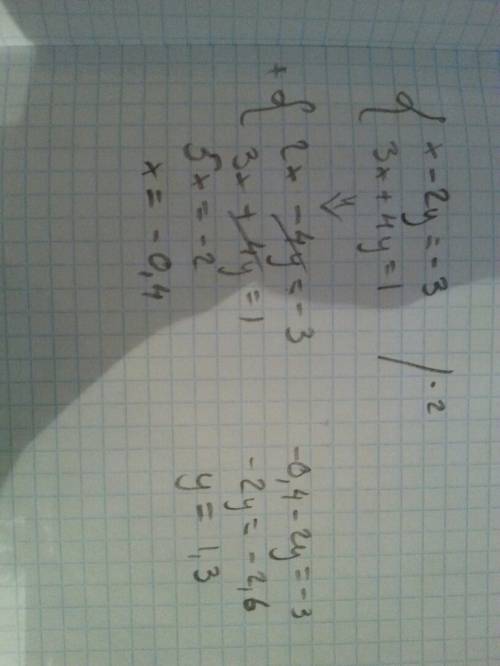 { x - 2y = -3 / · 2
{ 3x + 4y = 1
⇓
+ { 2x - 4y = -3
{ 3x + 4y = 1
5x = -2
x = -0,4
-0,4 - 2y = -3
-2y = -2,6
y = 1,3